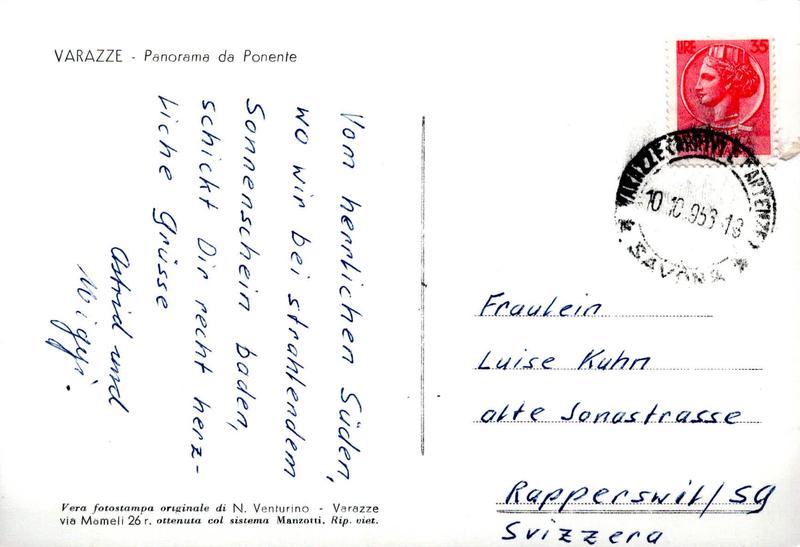 VARAZZE - Panorama da Ponente
Vom herrlichen Süden,
wo wir bei strahlendem
Sonnenschein baden,
schickt Dir recht herz-
liche Grüsse
Astrid und
LIRE 35
VARAZZE (ARRIVI E PARTENZE)
SAVONA
Fraulein
Luise Kuhn
alte Jonastrasse
Rapperswil/SG
Svizzera
Vera fotostampa originale di N. Venturino - Varazze
via Mameli 26 r. ottenuta col sistema Manzotti. Rip. viet.